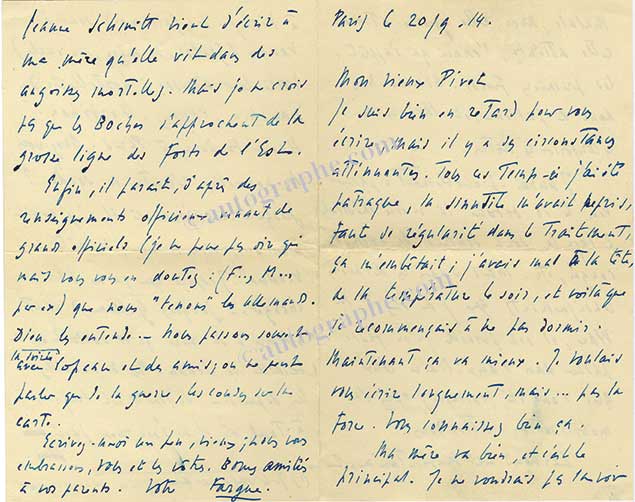 Paris le 20/9.14.
Mon vieux Pivet
Je suis bien en retard pour vous
écrire mais il y a des circonstances
atténuantes. Tous ces temps-ci j'ai été
patraque, la sinusite m'avait repris,
faute de régularité dans le traitement,
ça m'embêtait ; j'avais mal à la tête,
de la température le soir, et voilà que
je recommençais à ne pas dormir.
Maintenant ça va mieux. Je voulais
vous écrire longuement, mais... pas la
force. Vous connaissez bien ça.
Ma mère va bien, et c'est le
principal. Je ne voudrais pas la voir
Jeanne Schmitt vient d'écrire à
ma mère qu'elle vit dans des
angoisses mortelles. Mais je ne crois
pas que les Boches s'approchent de la
grosse ligne des Forts de l'Est.
Enfin, il paraît, d'après des
renseignements officieux venant de
grands officiels (je ne peux pas dire qui
mais vous vous en doutez : (F.., M..,
par ex) que nous "tenons" les allemands.
Dieu les entende... Nous passons souvent
la soirée
avec Topeau et des amis; on ne peut
parler que de la guerre, les coudes sur la
carte.
Ecrivez-moi un peu, vieux; nous vous
embrassons, vous et les vôtres. Bonnes amitiés
à vos parents. Votre Fargue.
©autographe.com
©autographe.com